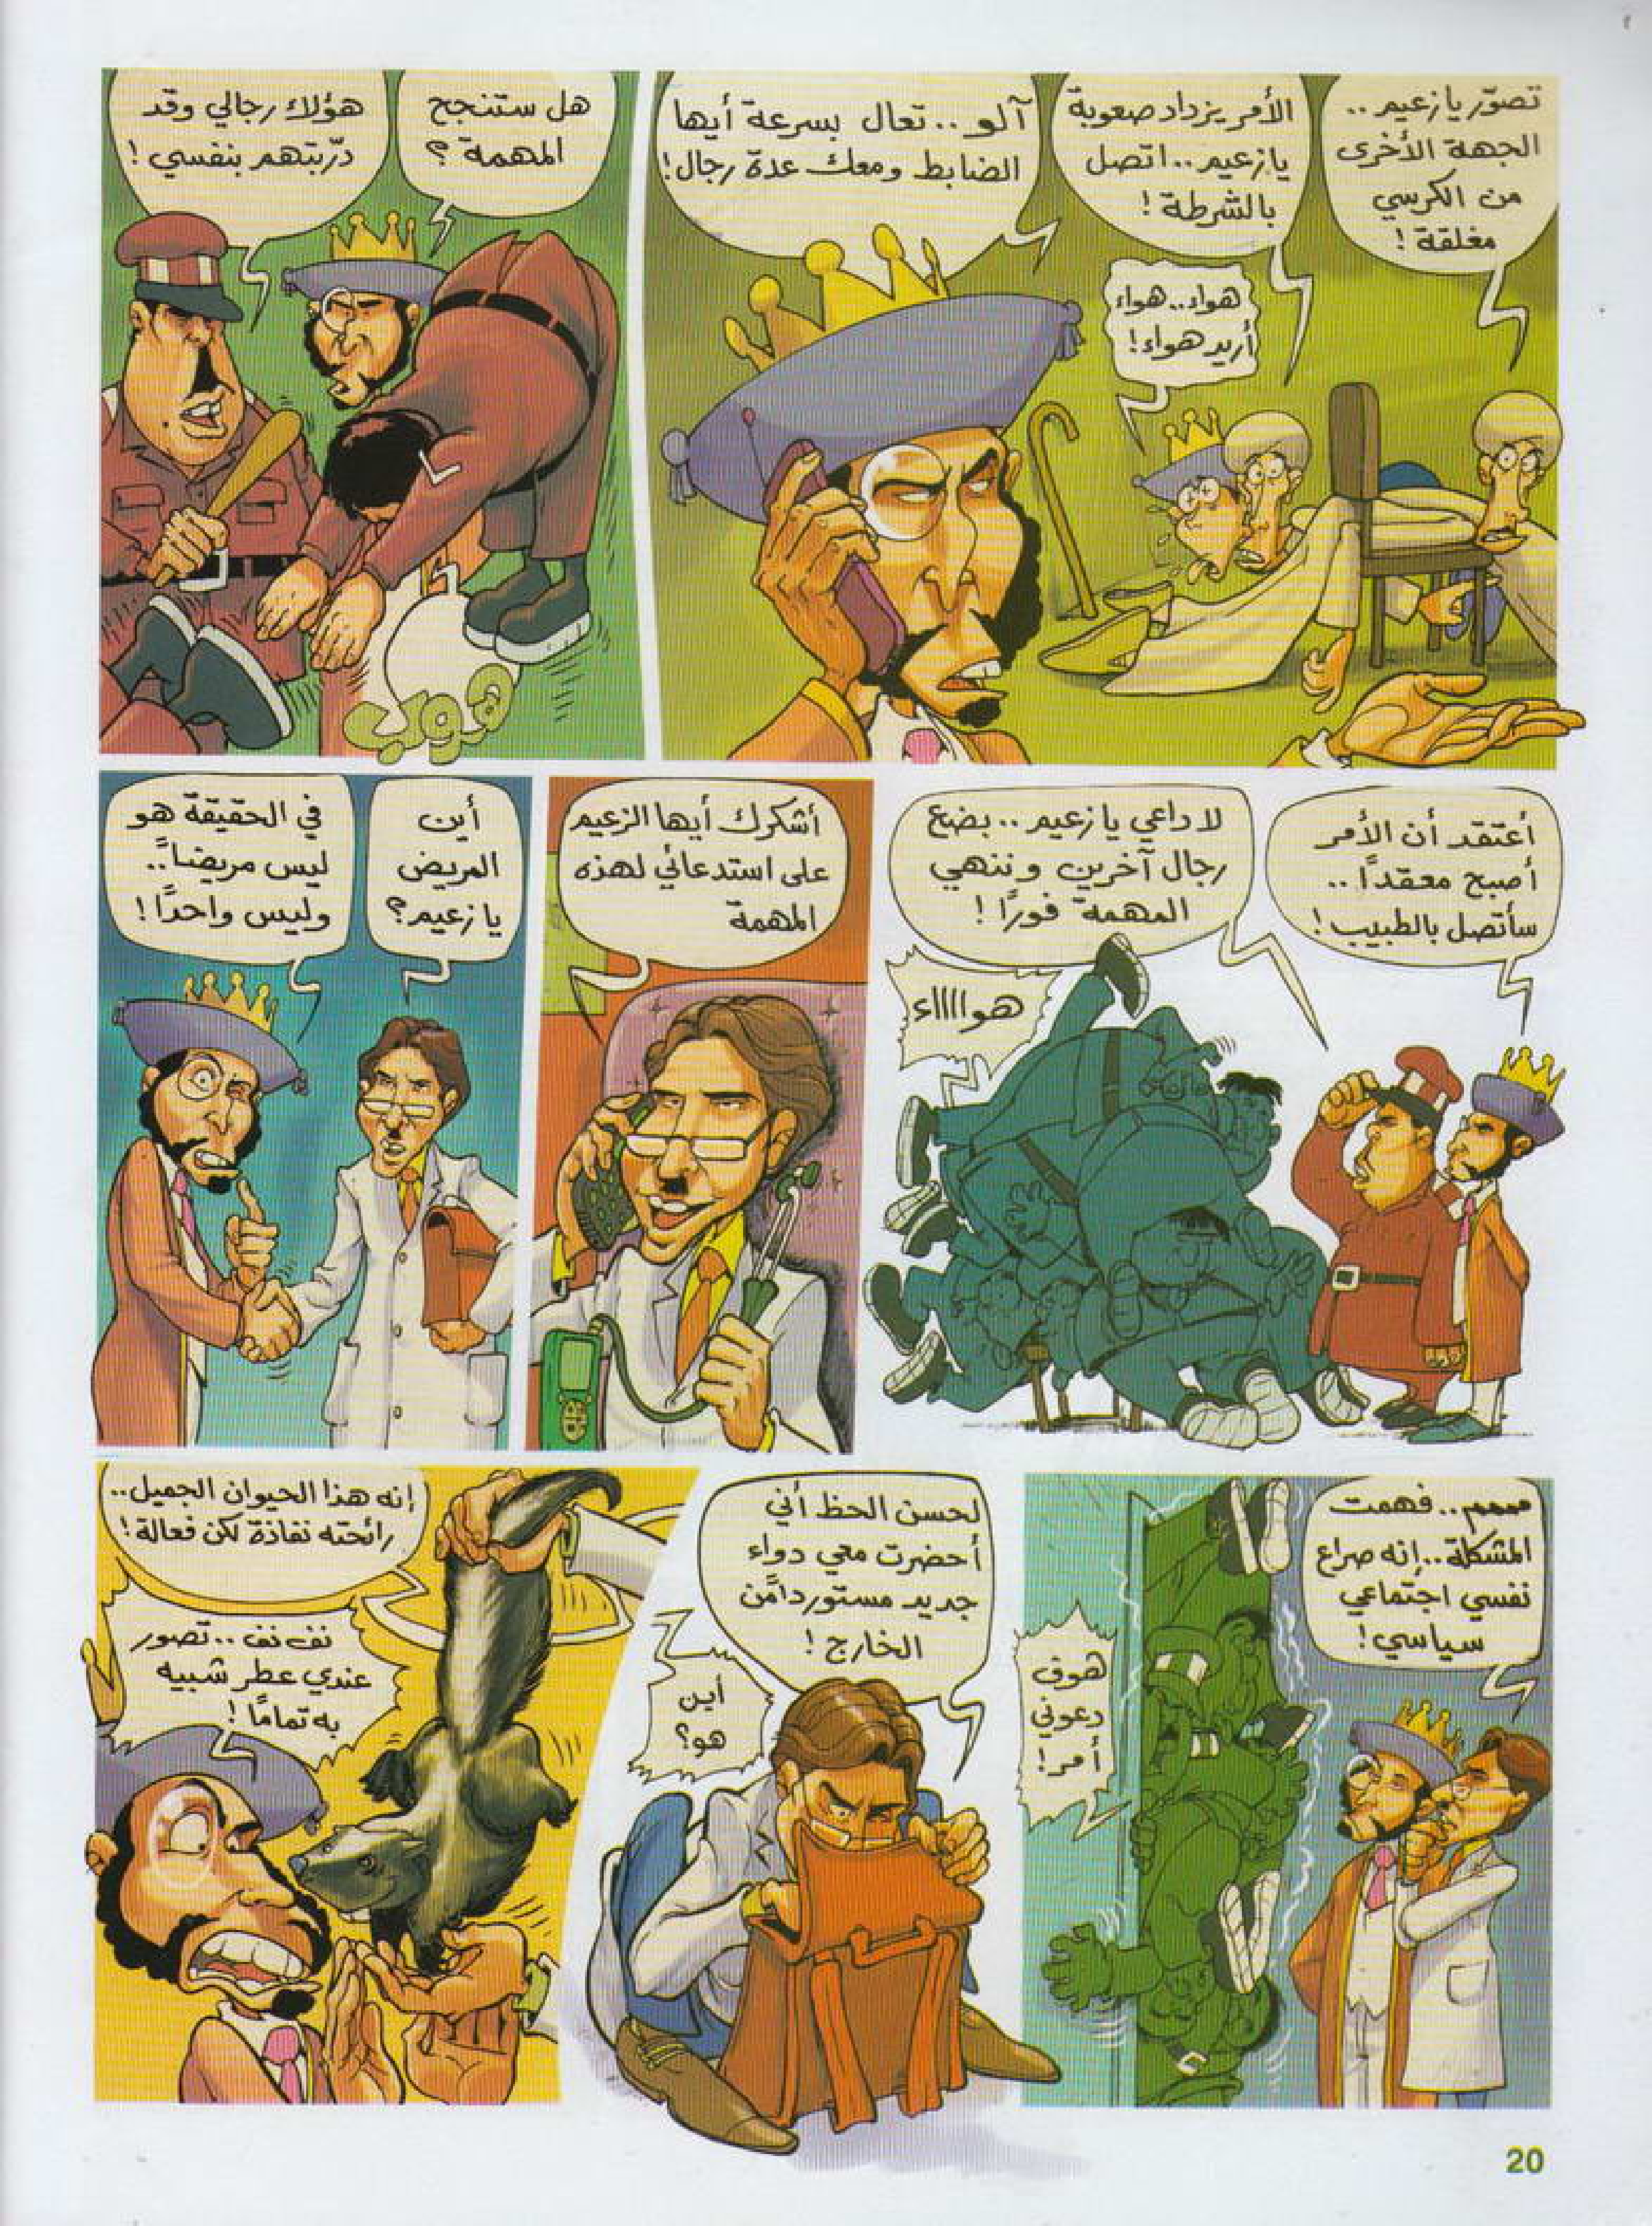 تصوّر يا زعيم ..
الجهة الأخرى
من الكرسي
مغلقة !
الأمر يزداد صعوبة
يا زعيم .. اتصل
بالشرطة !
هواء .. هواء
أريد هواء !
آلو .. تعال بسرعة أيها
الضابط ومعك عدة رجال !
هل ستنجح
المهمة ؟
هؤلاء رجالي وقد
درّبتهم بنفسي !
هوب
أعتقد أن الأمر
أصبح معقداً ..
سأتصل بالطبيب !
لا داعي يا زعيم .. بضع
رجال آخرين وننهي
المهمة فورًا !
هوااااء
أشكرك أيها الزعيم
على استدعائي لهذه
المهمة
أين
المريض
يا زعيم ؟
في الحقيقة هو
ليس مريضاً ..
وليس واحدًا !
ممممم .. فهمت
المشكلة .. إنه صراع
نفسي اجتماعي
سياسي !
هوف
دعوني
أمر !
لحسن الحظ أني
أحضرت معي دواء
جديد مستوردا من
الخارج !
أين
هو ؟
إنه هذا الحيوان الجميل ..
رائحته نفاذة لكن فعالة !
نف نف .. تصور
عندي عطر شبيه
به تمامًا !
20